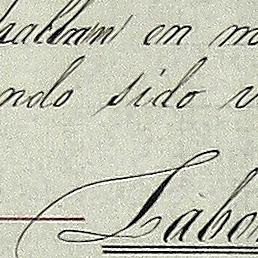 hallan en m
ndo sido v
Labo